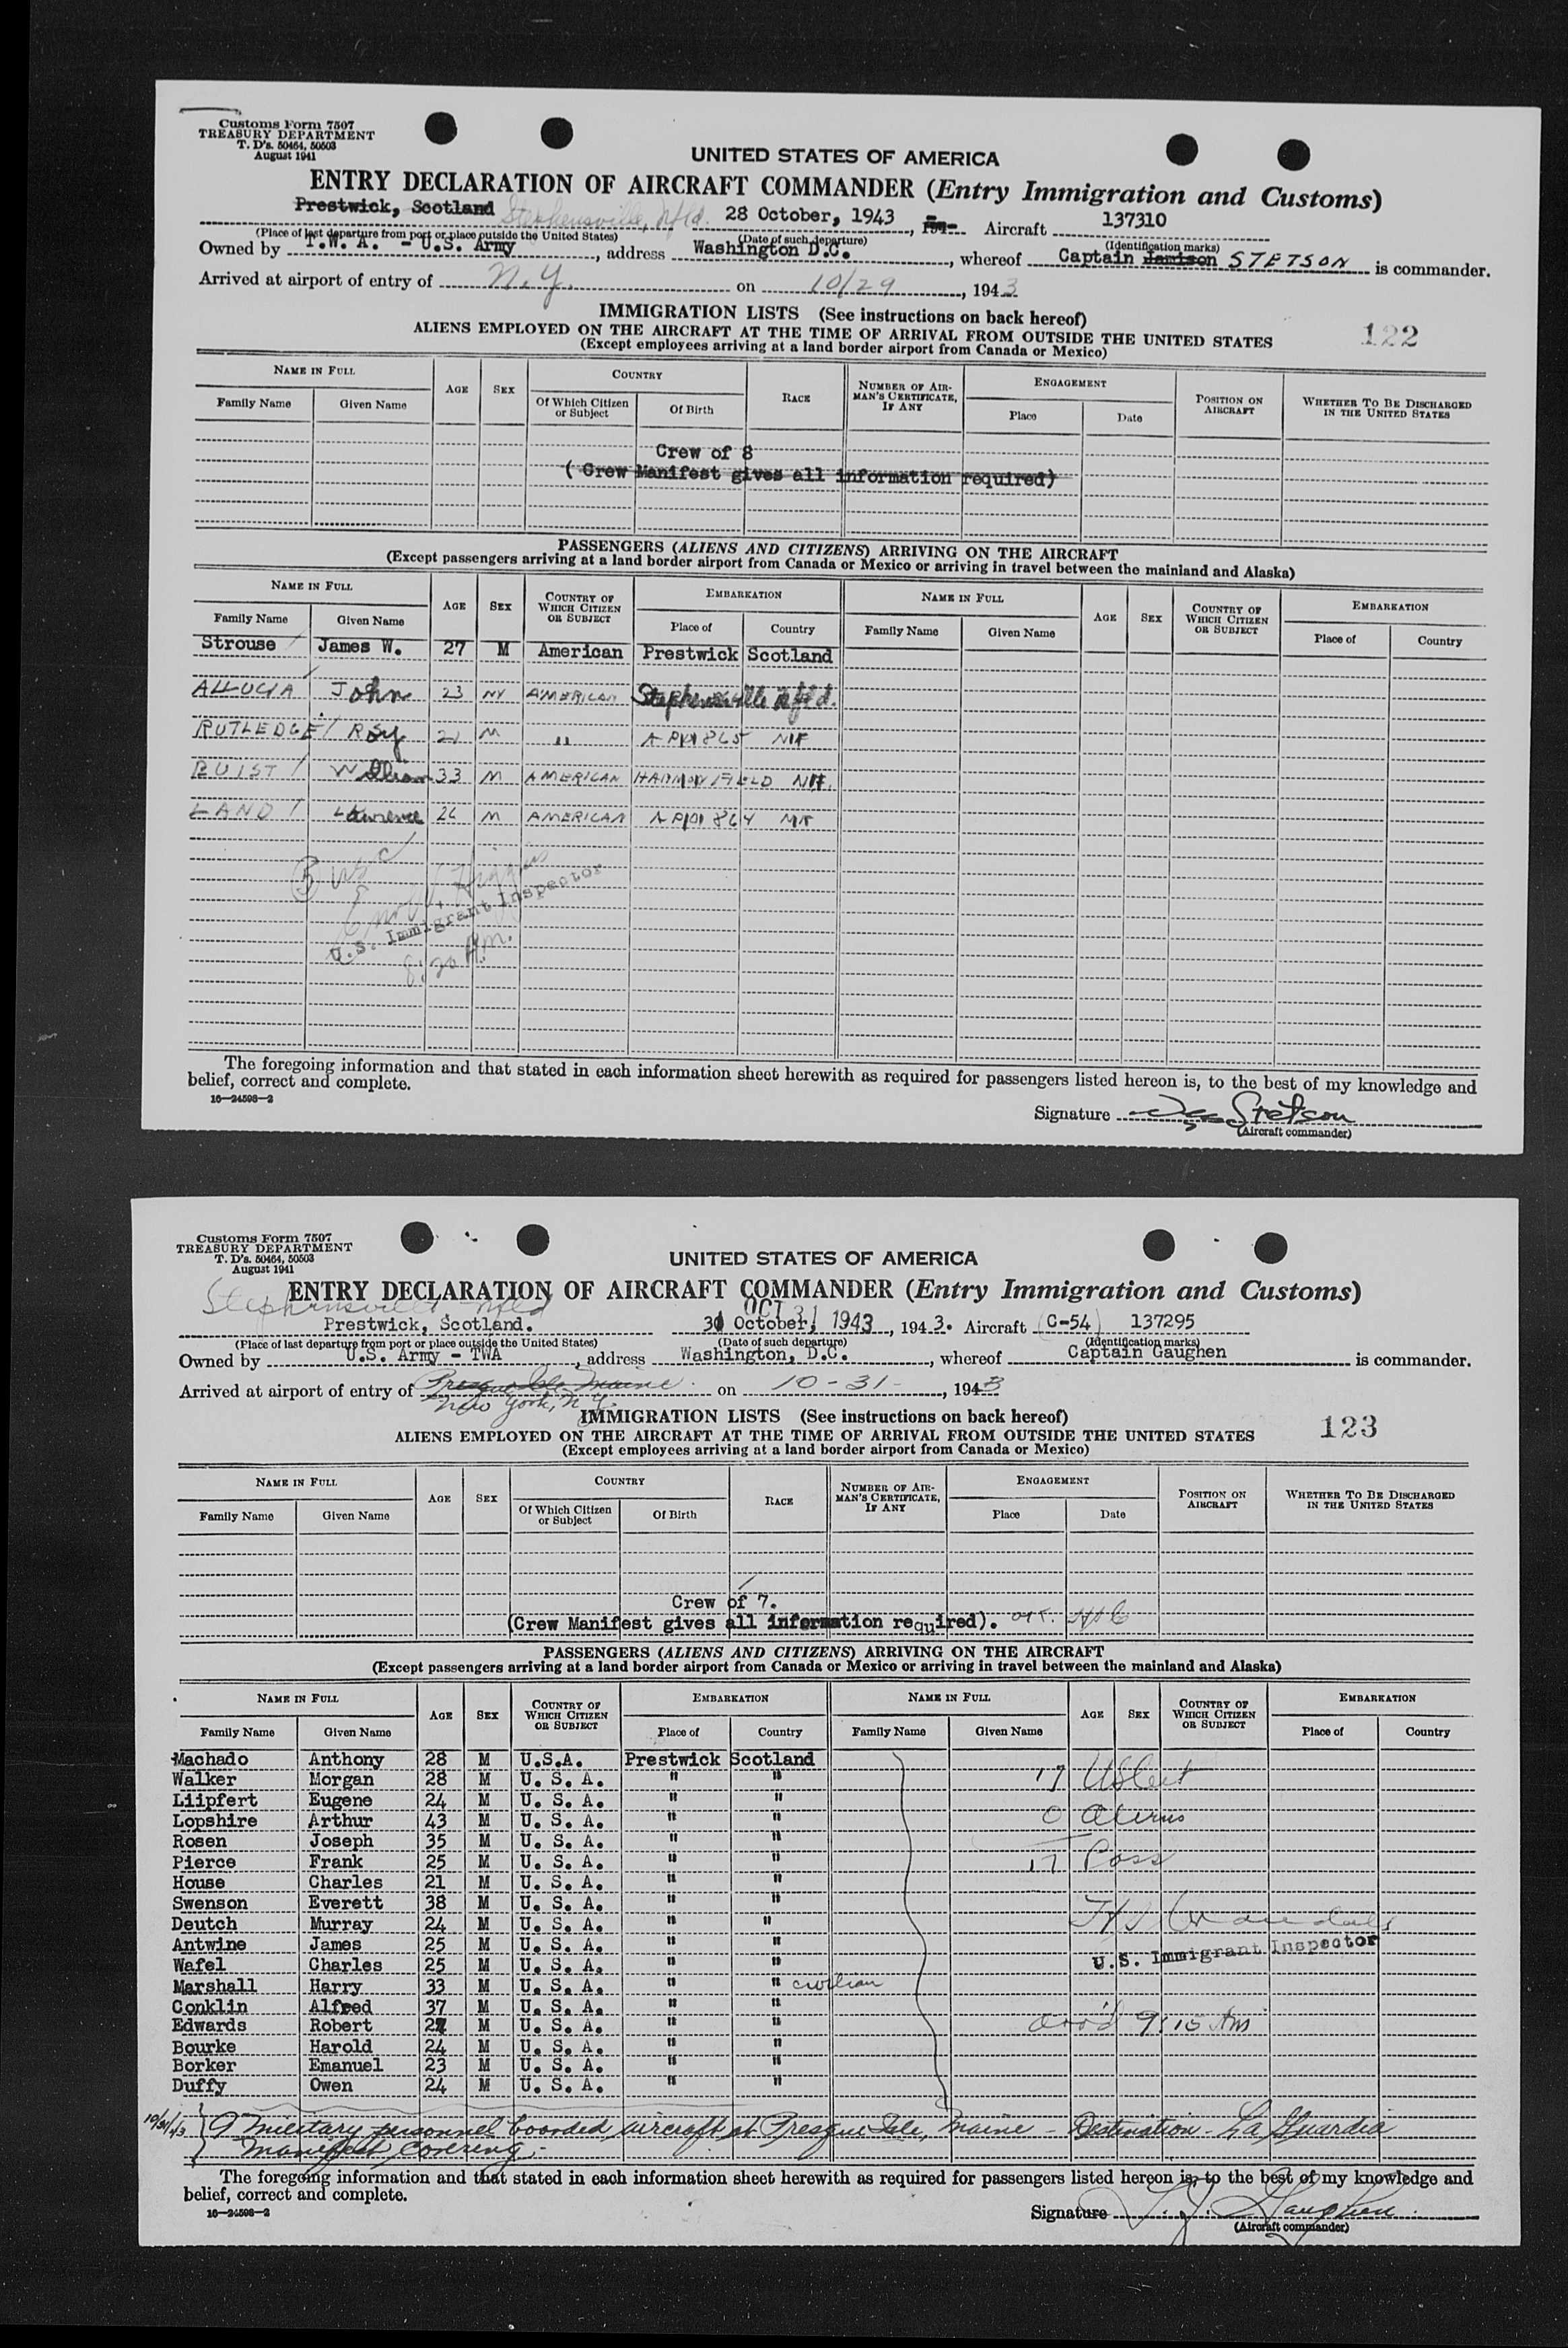 Customs Form 7507
TREASURY DEPARTMENT
T. D's. 50464, 50503
August 1941
UNITED STATES OF AMERICA
ENTRY DECLARATION OF AIRCRAFT COMMANDER (Entry Immigration and Customs)
Prestwick, Scotland Stephensville, Nfld. 28 October, 1943, 194- Aircraft 137310
(Place of last departure from port or place outside the United States) (Date of such departure) (Identification marks)
Owned by T.W. A. - U.S. Army, address Washington D.C., whereof Captain Jamison STETSON is commander.
Arrived at airport of entry of N.Y. on 10/29, 1943
IMMIGRATION LISTS (See instructions on back hereof)
122
ALIENS EMPLOYED ON THE AIRCRAFT AT THE TIME OF ARRIVAL FROM OUTSIDE THE UNITED STATES
(Except employees arriving at a land border airport from Canada or Mexico)
NAME IN FULL AGE SEX COUNTRY RACE NUMBER OF AIRMAN'S CERTIFICATE, IF ANY ENGAGEMENT POSITION ON AIRCRAFT WHETHER TO BE DISCHARGED IN THE UNITED STATES
Family Name Given Name Of Which Citizen or Subject Of Birth Place Date
Crew of 8
( Crew Manifest gives all information required)
PASSENGERS (ALIENS AND CITIZENS) ARRIVING ON THE AIRCRAFT
(Except passengers arriving at a land border airport from Canada or Mexico or arriving in travel between the mainland and Alaska)
NAME IN FULL AGE SEX COUNTRY OF WHICH CITIZEN OR SUBJECT EMBARKATION NAME IN FULL AGE SEX COUNTRY OF WHICH CITIZEN OR SUBJECT EMBARKATION
Family Name Given Name Place of Country Family Name Given Name Place of Country
Strouse James W. 27 M American Prestwick Scotland
ALLUCIA John 23 AMERICAN Stephensville Nfld.
RUTLEDGE Roy 21 M " APO 865 NF
BUIST William 33 M AMERICAN HARMON FIELD NF.
LAND Lawrence 26 M AMERICAN APO 864 NF
U.S. Immigrant Inspector
8:20 A.M.
The foregoing information and that stated in each information sheet herewith as required for passengers listed hereon is, to the best of my knowledge and
belief, correct and complete.
16—24598—2
Signature Stetson
(Aircraft commander)
Customs Form 7507
TREASURY DEPARTMENT
T. D's. 50464, 50503
August 1941
UNITED STATES OF AMERICA
ENTRY DECLARATION OF AIRCRAFT COMMANDER (Entry Immigration and Customs)
Stephensville Nfld OCT 31 1943
Prestwick, Scotland. 31 October, 1943. Aircraft (C-54) 137295
(Place of last departure from port or place outside the United States) (Date of such departure) (Identification marks)
Owned by U.S. Army - TWA, address Washington, D.C., whereof Captain Gaughen is commander.
Arrived at airport of entry of Presque Isle Maine on 10-31-, 1943
New York, N.Y.
IMMIGRATION LISTS (See instructions on back hereof)
123
ALIENS EMPLOYED ON THE AIRCRAFT AT THE TIME OF ARRIVAL FROM OUTSIDE THE UNITED STATES
(Except employees arriving at a land border airport from Canada or Mexico)
NAME IN FULL AGE SEX COUNTRY RACE NUMBER OF AIRMAN'S CERTIFICATE, IF ANY ENGAGEMENT POSITION ON AIRCRAFT WHETHER TO BE DISCHARGED IN THE UNITED STATES
Family Name Given Name Of Which Citizen or Subject Of Birth Place Date
Crew of 7.
(Crew Manifest gives all information required).
PASSENGERS (ALIENS AND CITIZENS) ARRIVING ON THE AIRCRAFT
(Except passengers arriving at a land border airport from Canada or Mexico or arriving in travel between the mainland and Alaska)
NAME IN FULL AGE SEX COUNTRY OF WHICH CITIZEN OR SUBJECT EMBARKATION NAME IN FULL AGE SEX COUNTRY OF WHICH CITIZEN OR SUBJECT EMBARKATION
Family Name Given Name Place of Country Family Name Given Name Place of Country
Machado Anthony 28 M U.S.A. Prestwick Scotland
Walker Morgan 28 M U. S. A. " " 17 US Cit
Liipfert Eugene 24 M U. S. A. " "
Lopshire Arthur 43 M U. S. A. " " 0 Aliens
Rosen Joseph 35 M U. S. A. " "
Pierce Frank 25 M U. S. A. " " 17 Pass
House Charles 21 M U. S. A. " "
Swenson Everett 38 M U. S. A. " "
Deutch Murray 24 M U. S. A. " "
Antwine James 25 M U. S. A. " " U.S. Immigrant Inspector
Wafel Charles 25 M U. S. A. " "
Marshall Harry 33 M U. S. A. " " civilian
Conklin Alfred 37 M U. S. A. " "
Edwards Robert 22 M U. S. A. " " Arr'd 9:15 Am
Bourke Harold 24 M U. S. A. " "
Borker Emanuel 23 M U. S. A. " "
Duffy Owen 24 M U. S. A. " "
10/31/43 9 military personnel boarded aircraft at Presque Isle, Maine - Destination - La Guardia
Manifest covering -
The foregoing information and that stated in each information sheet herewith as required for passengers listed hereon is, to the best of my knowledge and
belief, correct and complete.
16—24598—2
Signature Gaughen
(Aircraft commander)